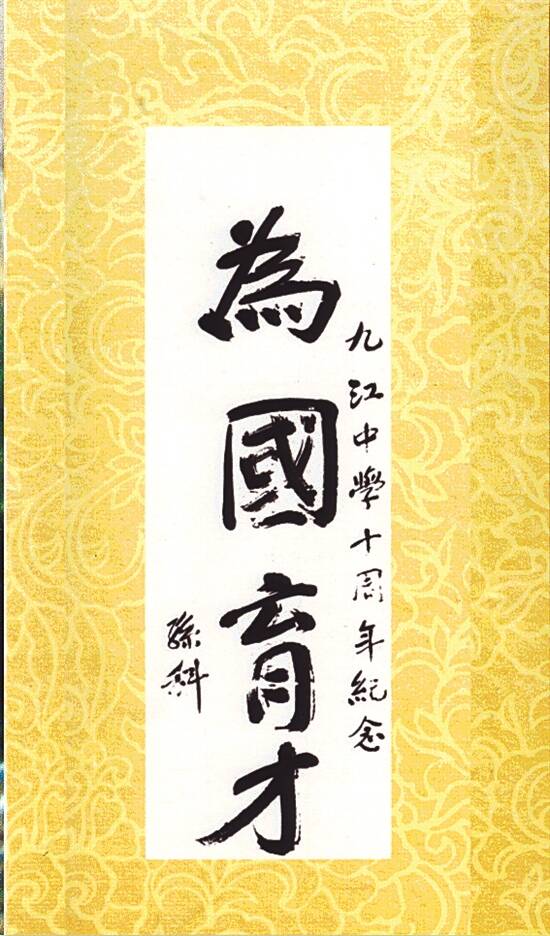 九江中學十周年紀念
為國育才
孫科